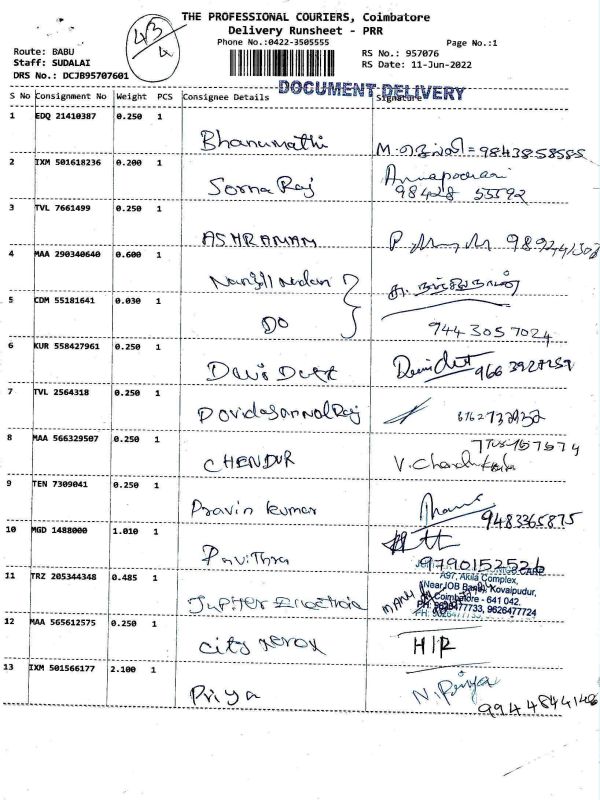 THE PROFESSIONAL COURIERS, Coimbatore
43/4
Delivery Runsheet - PRR
Phone No.:0422-3505555
Page No.:1
Route: BABU
RS No.: 957076
Staff: SUDALAI
RS Date: 11-Jun-2022
DRS No.: DCJB95707601
DOCUMENT DELIVERY
S No Consignment No Weight PCS Consignee Details Signature
1 EDQ 21410387 0.250 1
Bhanumathi M. 98438 58585
2 IXM 501618236 0.200 1
Sorna Raj Annapoorani
98428 55592
3 TVL 7661499 0.250 1
ASHRAMAM
4 MAA 290340640 0.600 1
5 CDM 55181641 0.030 1
DO 944 3057024
6 KUR 558427961 0.250 1
7 TVL 2564318 0.250 1
8 MAA 566329507 0.250 1
CHENDUR
9 TEN 7309041 0.250 1
Pravin kumar 9483365875
10 MGD 1488000 1.010 1
Pavithra 9790152526
11 TRZ 205344348 0.485 1
A97, Akila Complex,
(Near IOB Bank), Kovaipudur,
Coimbatore - 641 042.
PH: 9626477733, 9626477724
Jupiter
12 MAA 565612575 0.250 1
City xerox H/R
13 IXM 501566177 2.100 1
Priya N. Priya
9944844148